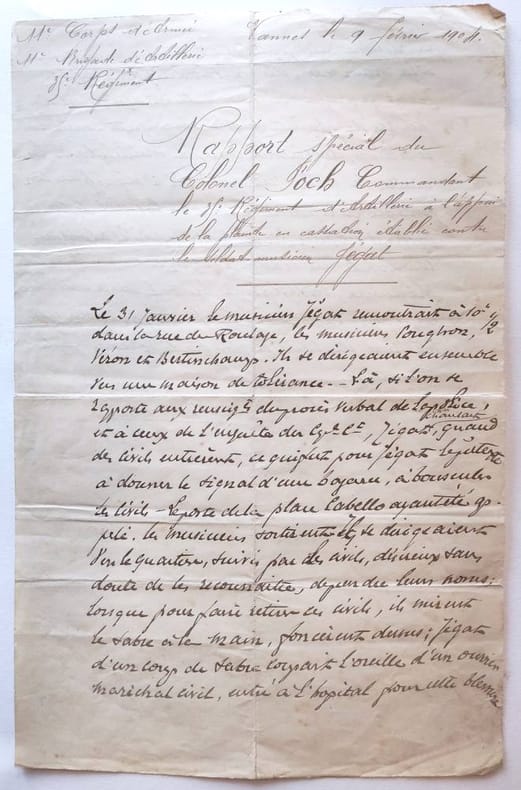 11e Corps d'Armée
Vannes le 9 février 1904.
11e Brigade d'Artillerie
35e Régiment
Rapport spécial du
Colonel Foch Commandant
le 35e Régiment d'Artillerie à l'appui
de la plainte en cassation établie contre
le soldat musicien Jégat
Le 31 Janvier le musicien Jégat rencontrait à 10h 1/2
dans la rue du Roulage, les musiciens
Véron et . Ils se dirigeaient ensemble
vers une maison de tolérance. - Là, si l'on se
rapporte aux renseigts du procès verbal de la police,
et à ceux de l'enquête du , Jégat, chantait quand
des civils entrèrent, ce qui fut pour Jégat le prétexte
à donner le signal d'une bagarre, à bousculer
les civils - Le poste de la place Cabello ayant été ap-
pelé, les musiciens sortirent et se dirigeaient
vers le quartier, suivis par des civils, désireux sans
doute de les reconnaître, de prendre leurs noms;
lorsque pour faire retirer ces civils, ils mirent
le sabre à la main, foncèrent dessus; Jégat
d'un coup de sabre coupait l'oreille d'un ouvrier
maréchal civil, entré à l'hôpital pour cette blessure